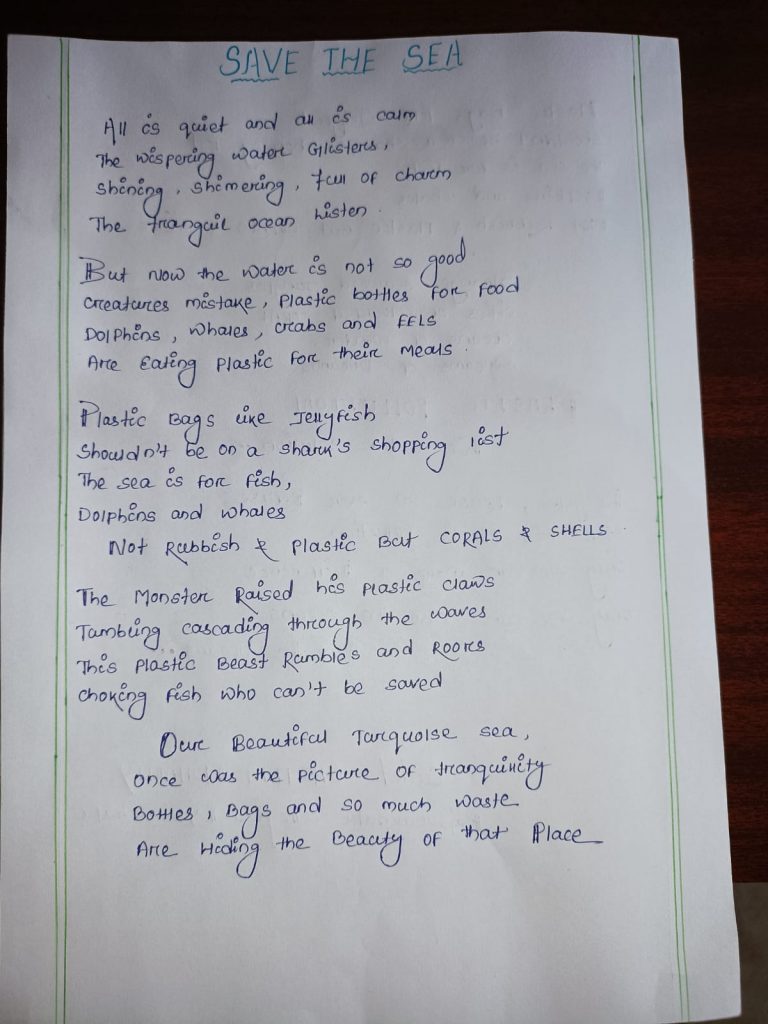 SAVE THE SEA
All is quiet and all is calm
The wispering water Glisters,
Shining, Shimering, Full of charm
The tranquil ocean listen.
But now the water is not so good
Creatures mistake, Plastic bottles for food
Dolphins, whales, crabs and EELS
Are Eating Plastic for their meals.
Plastic Bags like Jellyfish
Shouldn't be on a shark's shopping list
The sea is for fish,
Dolphins and whales
Not Rubbish & Plastic But CORALS & SHELLS.
The Monster Raised his plastic claws
Tumbling cascading through the waves
This Plastic Beast Rumbles and Roors
Choking fish who can't be saved
Our Beautiful Turquoise sea,
Once was the picture of tranquility
Bottles, Bags and so much waste
Are Hiding the Beauty of that Place